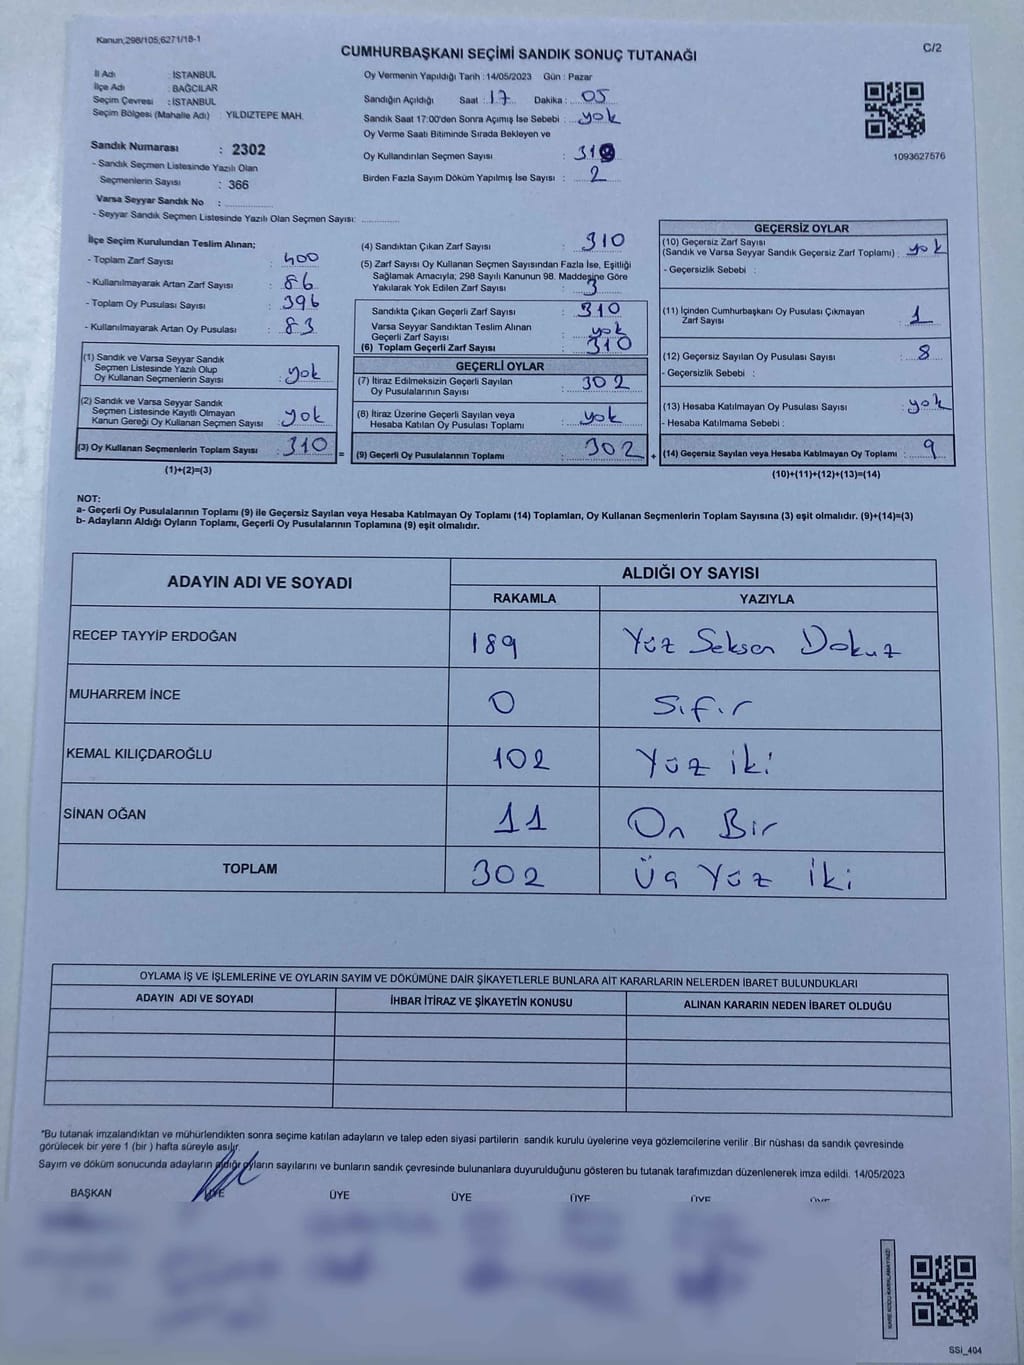 Kanun;298/105,6271/18-1
C/2
CUMHURBAŞKANI SEÇİMİ SANDIK SONUÇ TUTANAĞI
İl Adı : İSTANBUL
İlçe Adı : BAĞCILAR
Seçim Çevresi : İSTANBUL
Seçim Bölgesi (Mahalle Adı) : YILDIZTEPE MAH.
Sandık Numarası : 2302
- Sandık Seçmen Listesinde Yazılı Olan
Seçmenlerin Sayısı : 366
Varsa Seyyar Sandık No :
- Seyyar Sandık Seçmen Listesinde Yazılı Olan Seçmen Sayısı:
Oy Vermenin Yapıldığı Tarih :14/05/2023 Gün : Pazar
Sandığın Açıldığı Saat : 17 Dakika : 05
Sandık Saat 17:00'den Sonra Açımış İse Sebebi : yok
Oy Verme Saati Bitiminde Sırada Bekleyen ve
Oy Kullandırılan Seçmen Sayısı :
Birden Fazla Sayım Döküm Yapılmış İse Sayısı : 2
1093627576
İlçe Seçim Kurulundan Teslim Alınan;
- Toplam Zarf Sayısı : 400
- Kullanılmayarak Artan Zarf Sayısı : 86
- Toplam Oy Pusulası Sayısı : 396
- Kullanılmayarak Artan Oy Pusulası : 83
(1) Sandık ve Varsa Seyyar Sandık
Seçmen Listesinde Yazılı Olup
Oy Kullanan Seçmenlerin Sayısı : yok
(2) Sandık ve Varsa Seyyar Sandık
Seçmen Listesinde Kayıtlı Olmayan
Kanun Gereği Oy Kullanan Seçmen Sayısı : yok
(3) Oy Kullanan Seçmenlerin Toplam Sayısı : 310
(1)+(2)=(3)
=
(4) Sandıktan Çıkan Zarf Sayısı : 310
(5) Zarf Sayısı Oy Kullanan Seçmen Sayısından Fazla İse, Eşitliği
Sağlamak Amacıyla; 298 Sayılı Kanunun 98. Maddesine Göre
Yakılarak Yok Edilen Zarf Sayısı : 3
Sandıkta Çıkan Geçerli Zarf Sayısı : 310
Varsa Seyyar Sandıktan Teslim Alınan
Geçerli Zarf Sayısı : yok
(6) Toplam Geçerli Zarf Sayısı : 310
GEÇERLİ OYLAR
(7) İtiraz Edilmeksizin Geçerli Sayılan
Oy Pusulalarının Sayısı : 302
(8) İtiraz Üzerine Geçerli Sayılan veya
Hesaba Katılan Oy Pusulası Toplamı : yok
(9) Geçerli Oy Pusulalarının Toplamı : 302
+
GEÇERSİZ OYLAR
(10) Geçersiz Zarf Sayısı
(Sandık ve Varsa Seyyar Sandık Geçersiz Zarf Toplamı) : yok
- Geçersizlik Sebebi :
(11) İçinden Cumhurbaşkanı Oy Pusulası Çıkmayan
Zarf Sayısı : 1
(12) Geçersiz Sayılan Oy Pusulası Sayısı : 8
- Geçersizlik Sebebi :
(13) Hesaba Katılmayan Oy Pusulası Sayısı : yok
- Hesaba Katılmama Sebebi :
(14) Geçersiz Sayılan veya Hesaba Katılmayan Oy Toplamı : 9
(10)+(11)+(12)+(13)=(14)
NOT:
a- Geçerli Oy Pusulalarının Toplamı (9) ile Geçersiz Sayılan veya Hesaba Katılmayan Oy Toplamı (14) Toplamları, Oy Kullanan Seçmenlerin Toplam Sayısına (3) eşit olmalıdır. (9)+(14)=(3)
b- Adayların Aldığı Oyların Toplamı, Geçerli Oy Pusulalarının Toplamına (9) eşit olmalıdır.
ADAYIN ADI VE SOYADI ALDIĞI OY SAYISI
RAKAMLA YAZIYLA
RECEP TAYYİP ERDOĞAN 189 Yüz Seksen Dokuz
MUHARREM İNCE 0 Sıfır
KEMAL KILIÇDAROĞLU 102 Yüz iki
SİNAN OĞAN 11 On Bir
TOPLAM 302 Üç Yüz İki
OYLAMA İŞ VE İŞLEMLERİNE VE OYLARIN SAYIM VE DÖKÜMÜNE DAİR ŞİKAYETLERLE BUNLARA AİT KARARLARIN NELERDEN İBARET BULUNDUKLARI
ADAYIN ADI VE SOYADI İHBAR İTİRAZ VE ŞİKAYETİN KONUSU ALINAN KARARIN NEDEN İBARET OLDUĞU
*Bu tutanak imzalandıktan ve mühürlendikten sonra seçime katılan adayların ve talep eden siyasi partilerin sandık kurulu üyelerine veya gözlemcilerine verilir .Bir nüshası da sandık çevresinde
görülecek bir yere 1 (bir ) hafta süreyle asılır.
Sayım ve döküm sonucunda adayların aldığı oyların sayılarını ve bunların sandık çevresinde bulunanlara duyurulduğunu gösteren bu tutanak tarafımızdan düzenlenerek imza edildi. 14/05/2023
BAŞKAN ÜYE ÜYE ÜYE ÜYE ÜYE ÜYE
SSİ_404